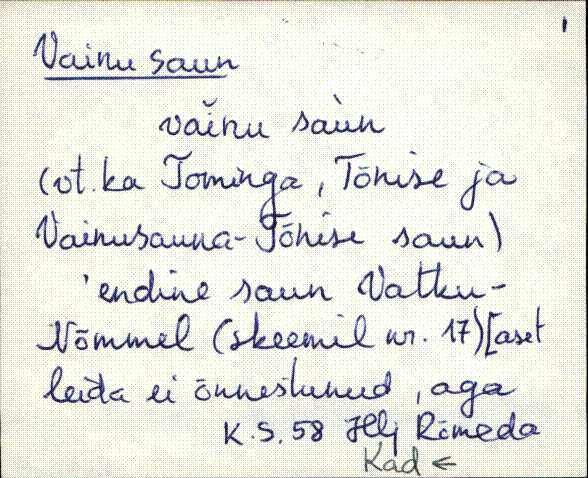 1
Vainu saun
vaĭnu saùn
(vt. ka Tominga, Tõnise ja
Vainusauna-Tõnise saun)
'endine saun Vatku-
Nõmmel (skeemil nr. 17)[aset
leida ei õnnestunud, aga
K.S. 58 Hlj Rõmeda
Kad ←